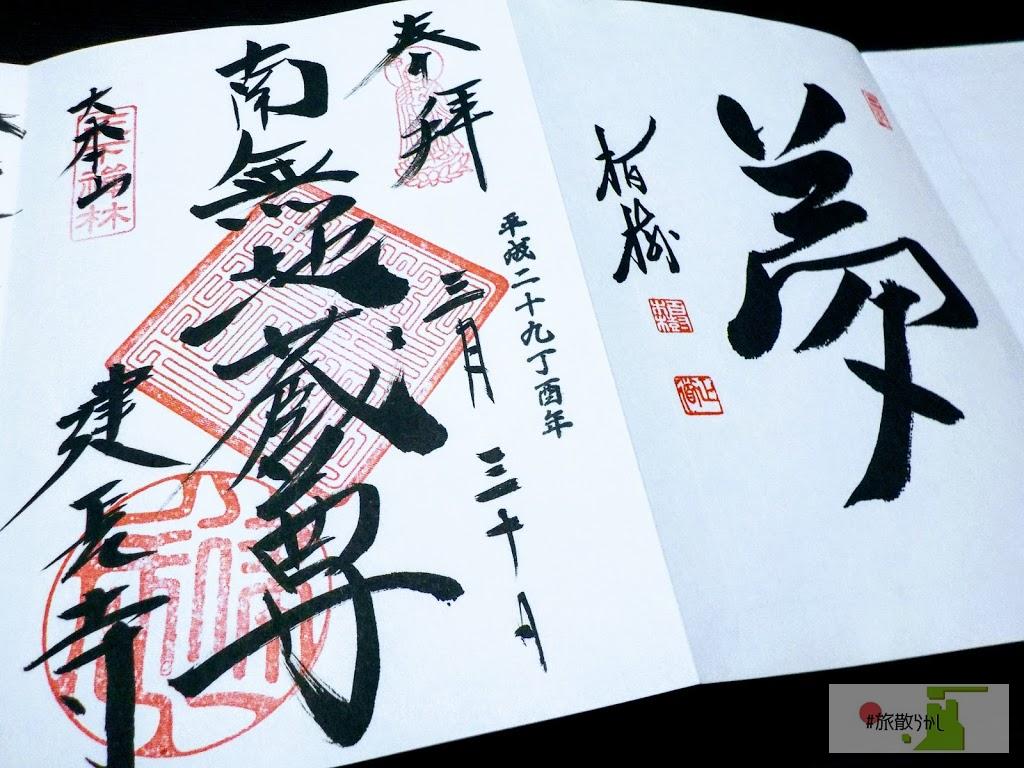 夢
柏樹
奉拝
平成二十九丁酉年
三月三十日
南無地蔵尊
大本山
建長寺
#旅散らかし